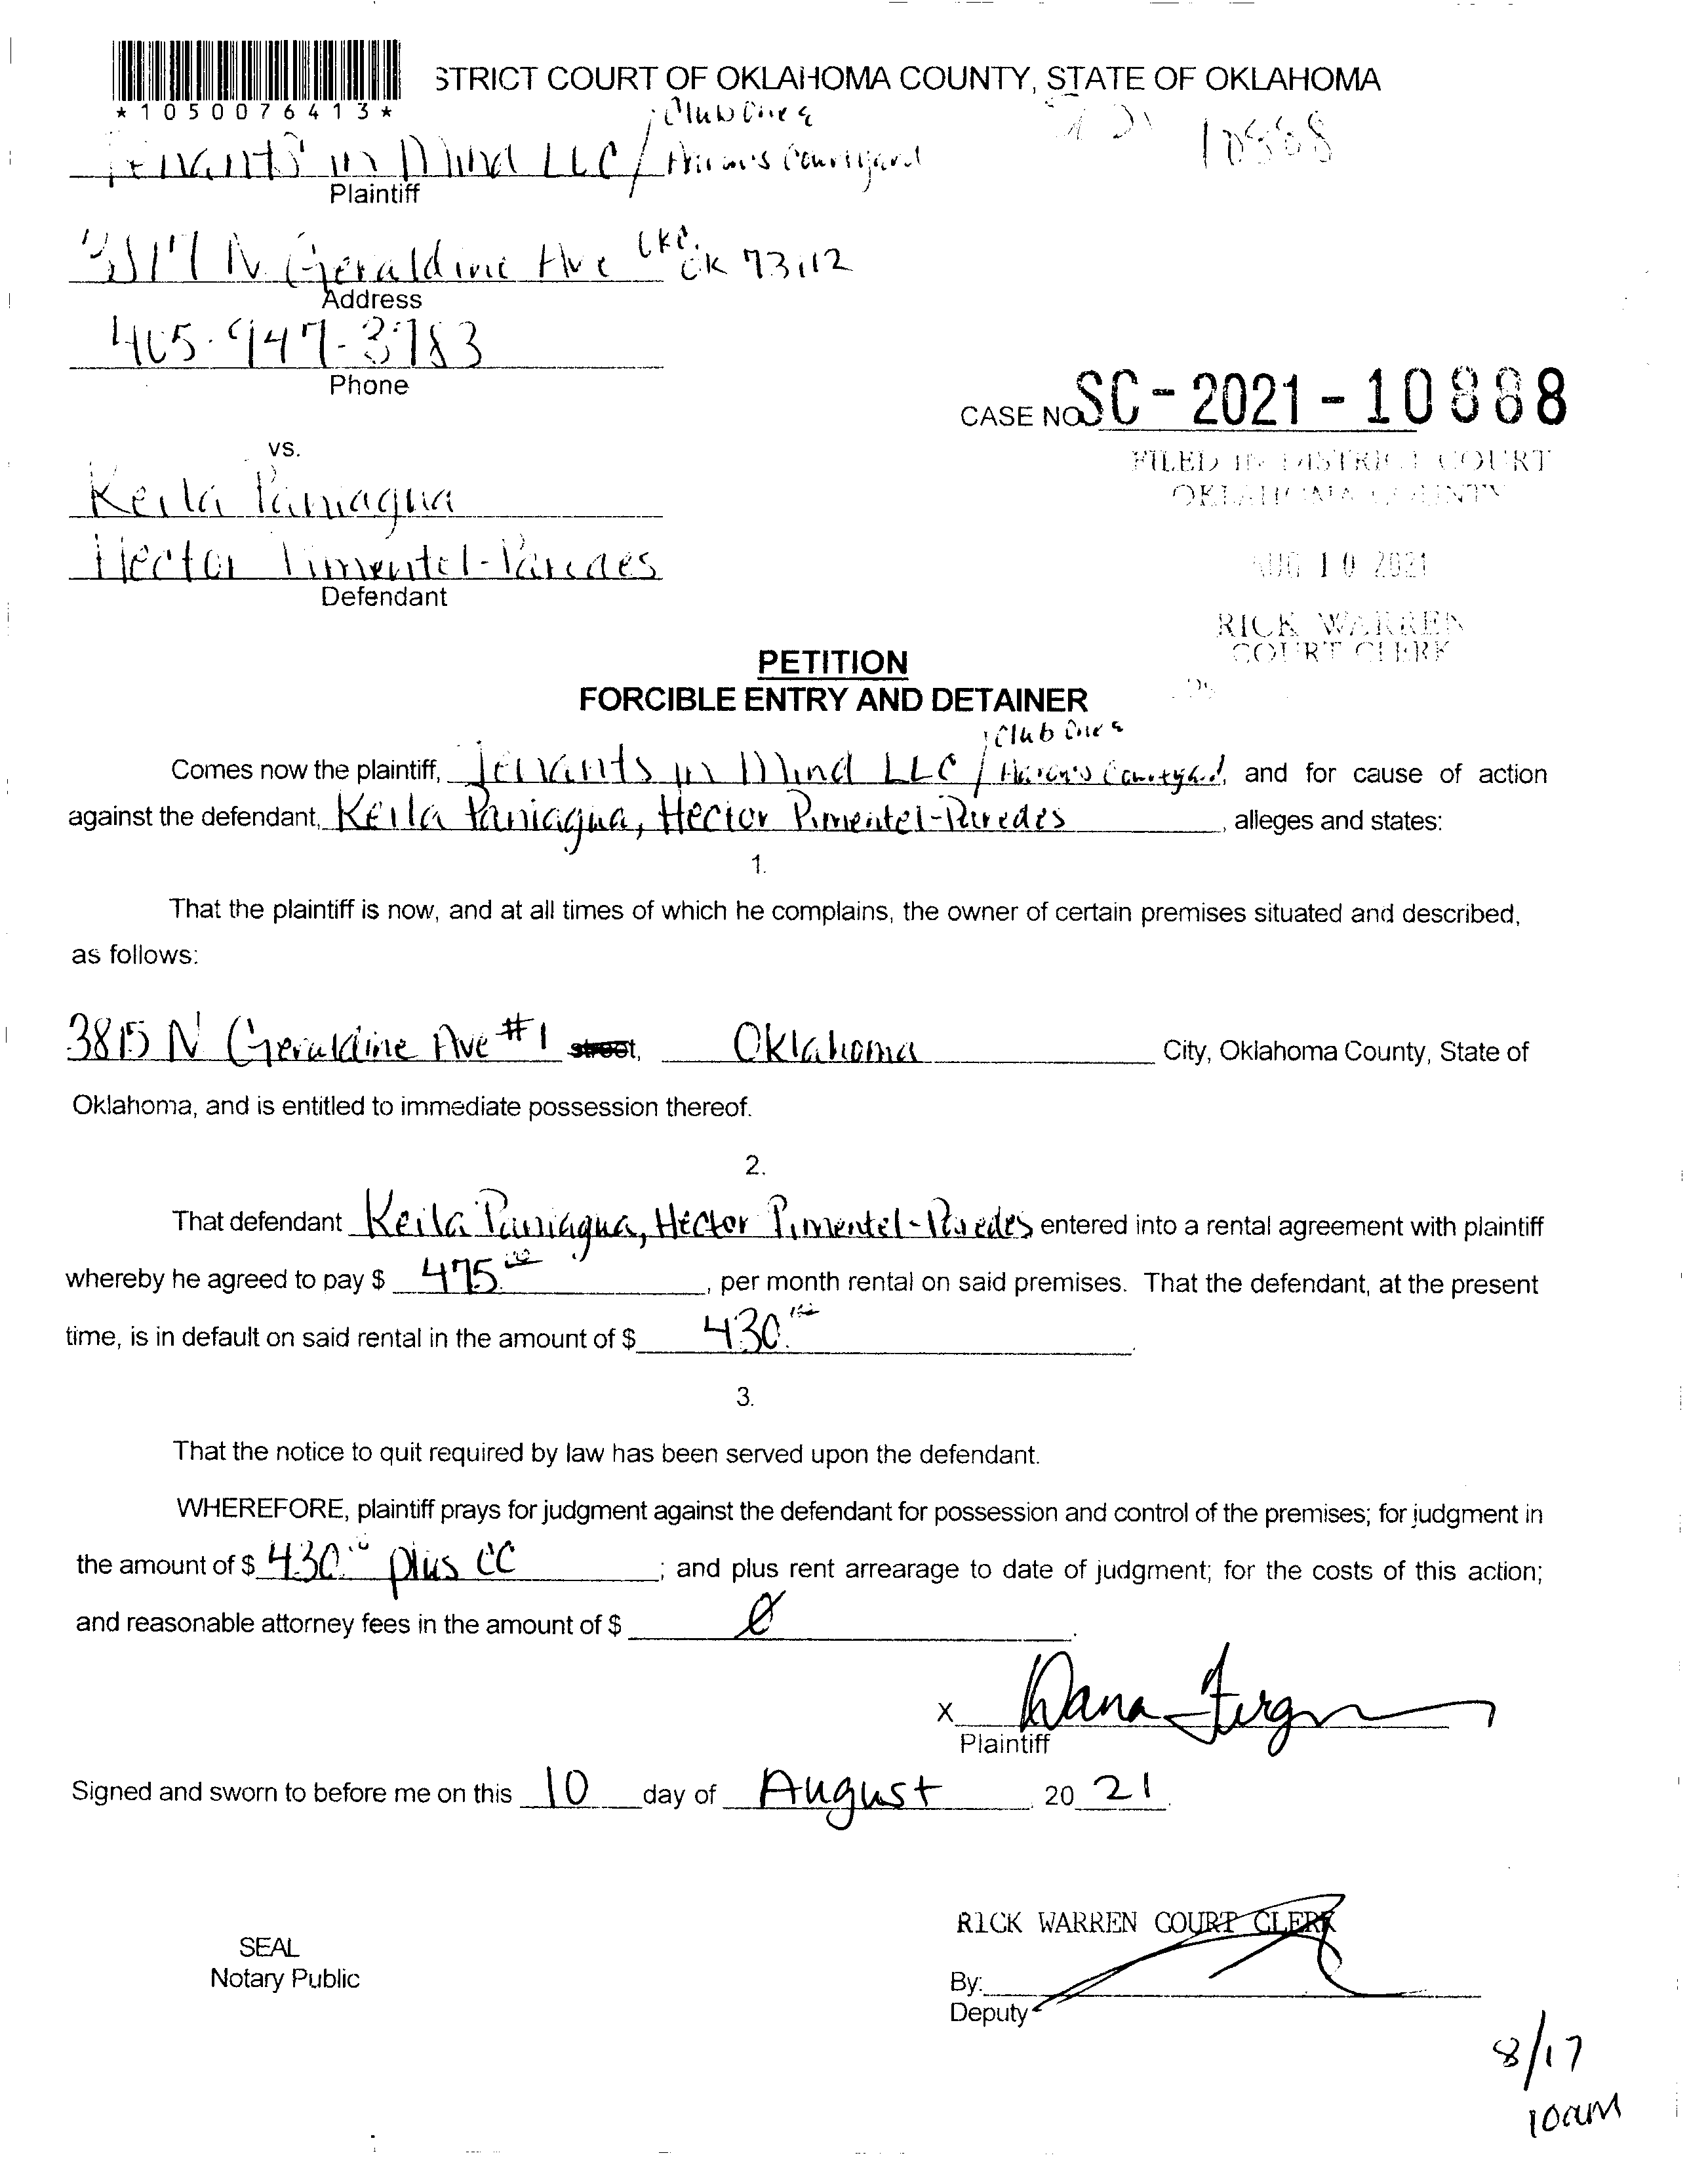 STRICT COURT OF OKLAHOMA COUNTY, STATE OF OKLAHOMA
*1050076413*
Club One &
10888
Tenants in Mind LLC/
Courtyard
Plaintiff
N Geraldine Ave OKC, OK 73112
Address
405-947-3783
Phone
CASE NO SC-2021-10888
vs.
FILED IN DISTRICT COURT
OKLAHOMA COUNTY
Keila Paniagua
Hector Pimentel-Paredes
AUG 10 2021
Defendant
RICK WARREN
COURT CLERK
PETITION
FORCIBLE ENTRY AND DETAINER
Club One &
Comes now the plaintiff, Tenants in Mind LLC / Courtyard, and for cause of action
against the defendant, Keila Paniagua, Hector Pimentel-Paredes, alleges and states:
1.
That the plaintiff is now, and at all times of which he complains, the owner of certain premises situated and described,
as follows:
3815 N Geraldine Ave #1 street, Oklahoma City, Oklahoma County, State of
Oklahoma, and is entitled to immediate possession thereof.
2.
That defendant Keila Paniagua, Hector Pimentel-Paredes entered into a rental agreement with plaintiff
whereby he agreed to pay $ 475.00, per month rental on said premises. That the defendant, at the present
time, is in default on said rental in the amount of $ 430.00.
3.
That the notice to quit required by law has been served upon the defendant.
WHEREFORE, plaintiff prays for judgment against the defendant for possession and control of the premises; for judgment in
the amount of $ 430.00 plus CC; and plus rent arrearage to date of judgment; for the costs of this action;
and reasonable attorney fees in the amount of $ Ø.
X Dana
Plaintiff
Signed and sworn to before me on this 10 day of August, 20 21.
RICK WARREN COURT CLERK
SEAL
Notary Public
By:
Deputy
8/17
10am